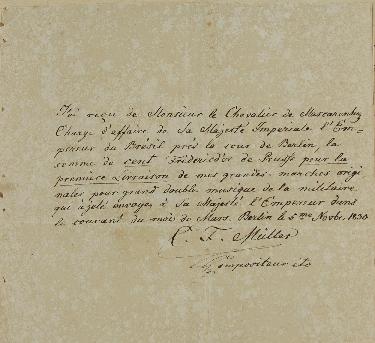 J'ai reçu de Monsieur le Chevalier de Mascarenhas
Chargé d'affaire de Sa Majesté Imperiale l'Em=
pereur du Brésil près la cour de Berlin, la
somme de cent Frédericsdor de Prusse pour la
premiere Livraison de mes grandes marches origi
nales pour grand double musique de la militaire
qui a été envoyé à sa Majesté l'Empereur dans
le courant du mois de Mars. Berlin le 5me Novbr. 1830
C. F. Müller
Compositeur etc